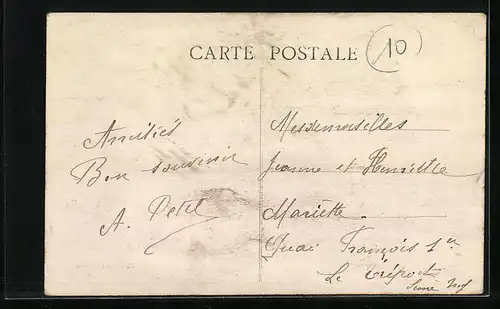 CARTE POSTALE
10
Amitiés
Bon souvenir
A. Petel
Mesdemoiselles
Jeanne et Henriette
Mariette
Quai François 1er
Le Tréport
Seine Inf